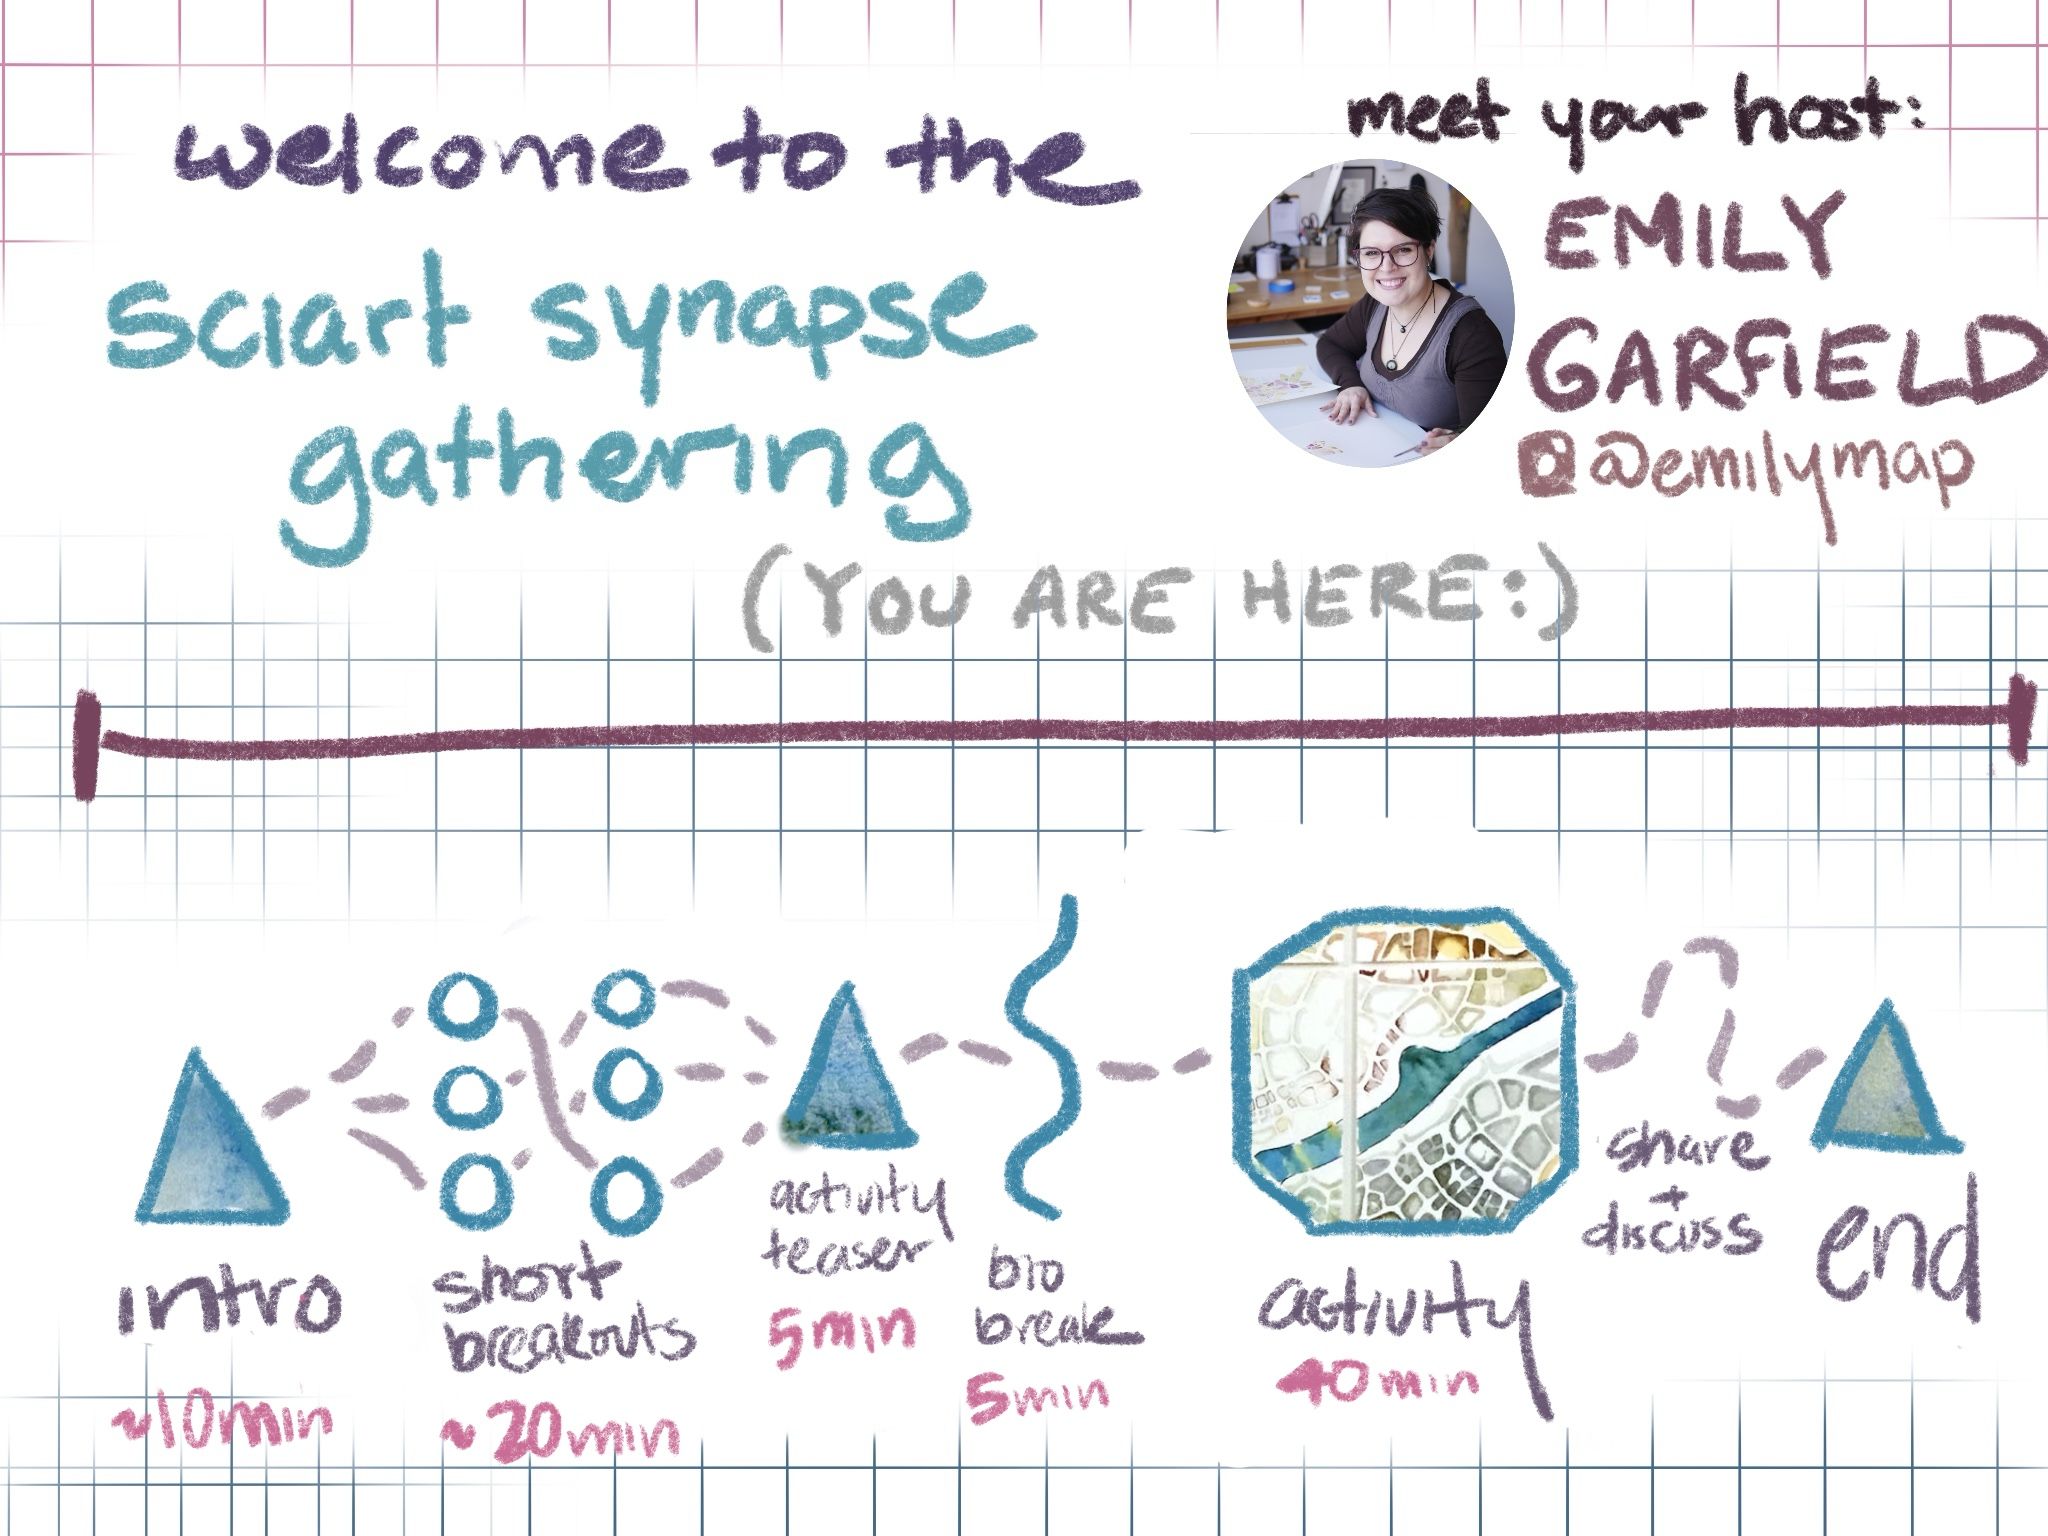 welcome to the
sciart synapse
gathering
meet your host:
EMILY
GARFIELD
@emilymap
(YOU ARE HERE:)
intro
~10min
short
breakouts
~20min
activity
teaser
5min
bio
break
5min
activity
40min
share
+
discuss
end